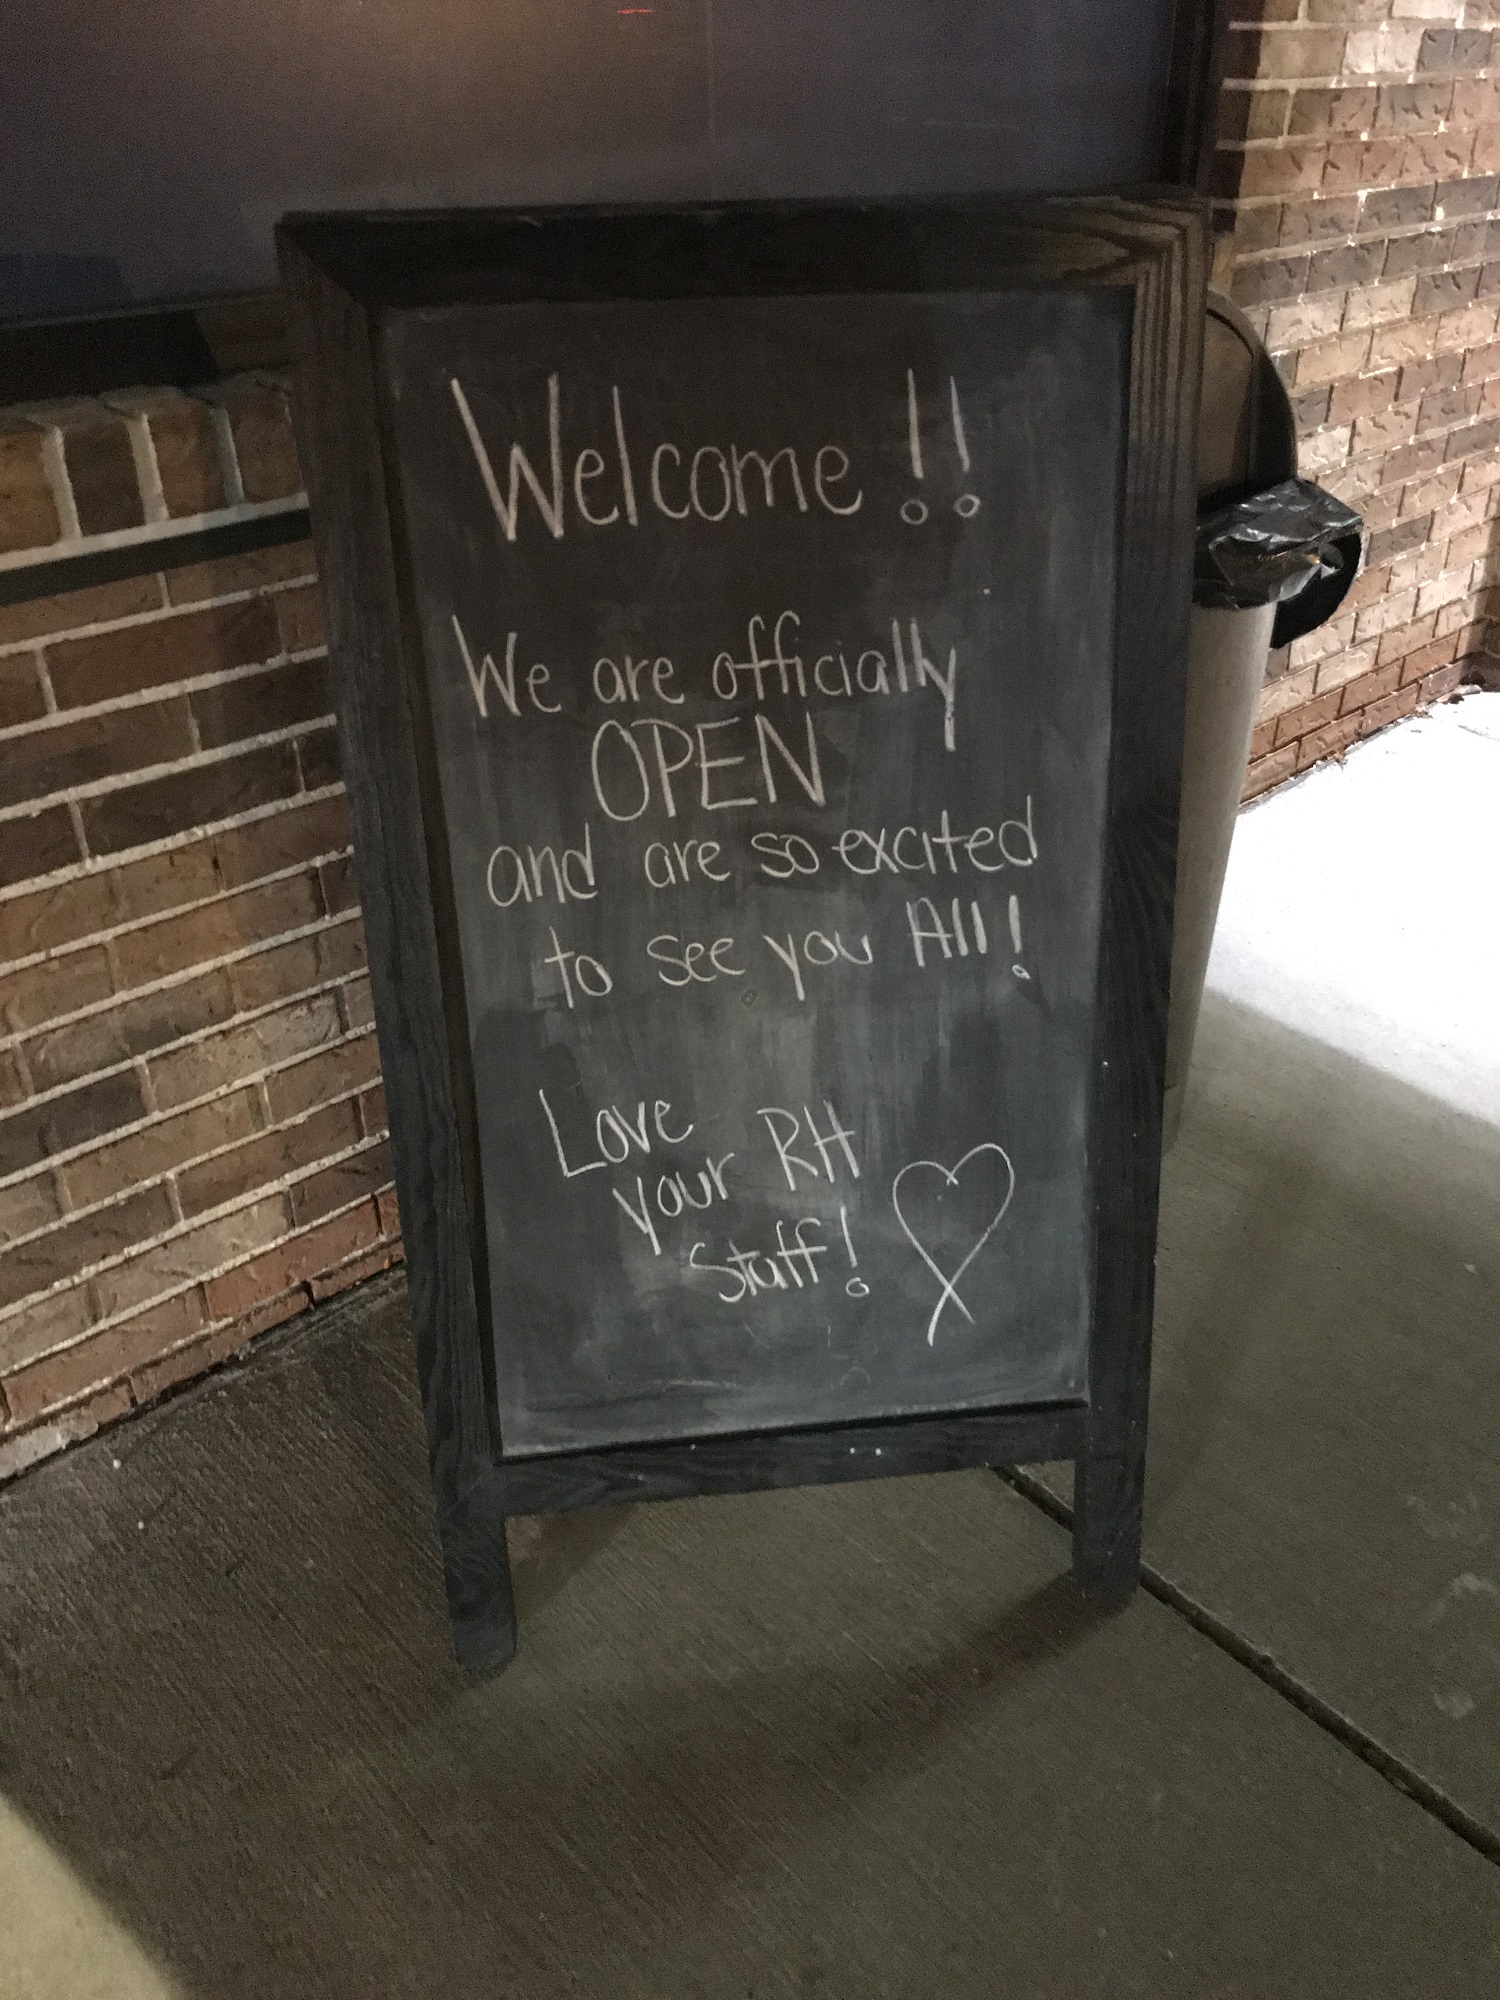 Welcome!!
We are officially
OPEN
and are so excited
to see you All!
Love
your RH
Staff!